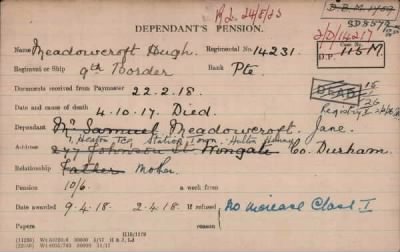 R2. 24/5/33
D.B.M. 1702
SD 3572
DEPENDANT'S PENSION.
2/D/14217
Name Meadowcroft Hugh. Regimental No. 14231.
D.P. 115M
Regiment or Ship 9th Border Rank Pte.
Documents received from Paymaster 22.2.18.
DEAD 15
26
Date and cause of death 4.10.17. Died.
Registry
Dependant Mr Samuel Meadowcroft, Jane.
7, Heaton Ter Station Town. Hutton Henry
Address 247 Johnson Wingate Co. Durham.
Relationship Father Mother.
Pension 10/6 a week from
Date awarded 9.4.18. 2.4.18. If refused No increase Class I
Papers reason